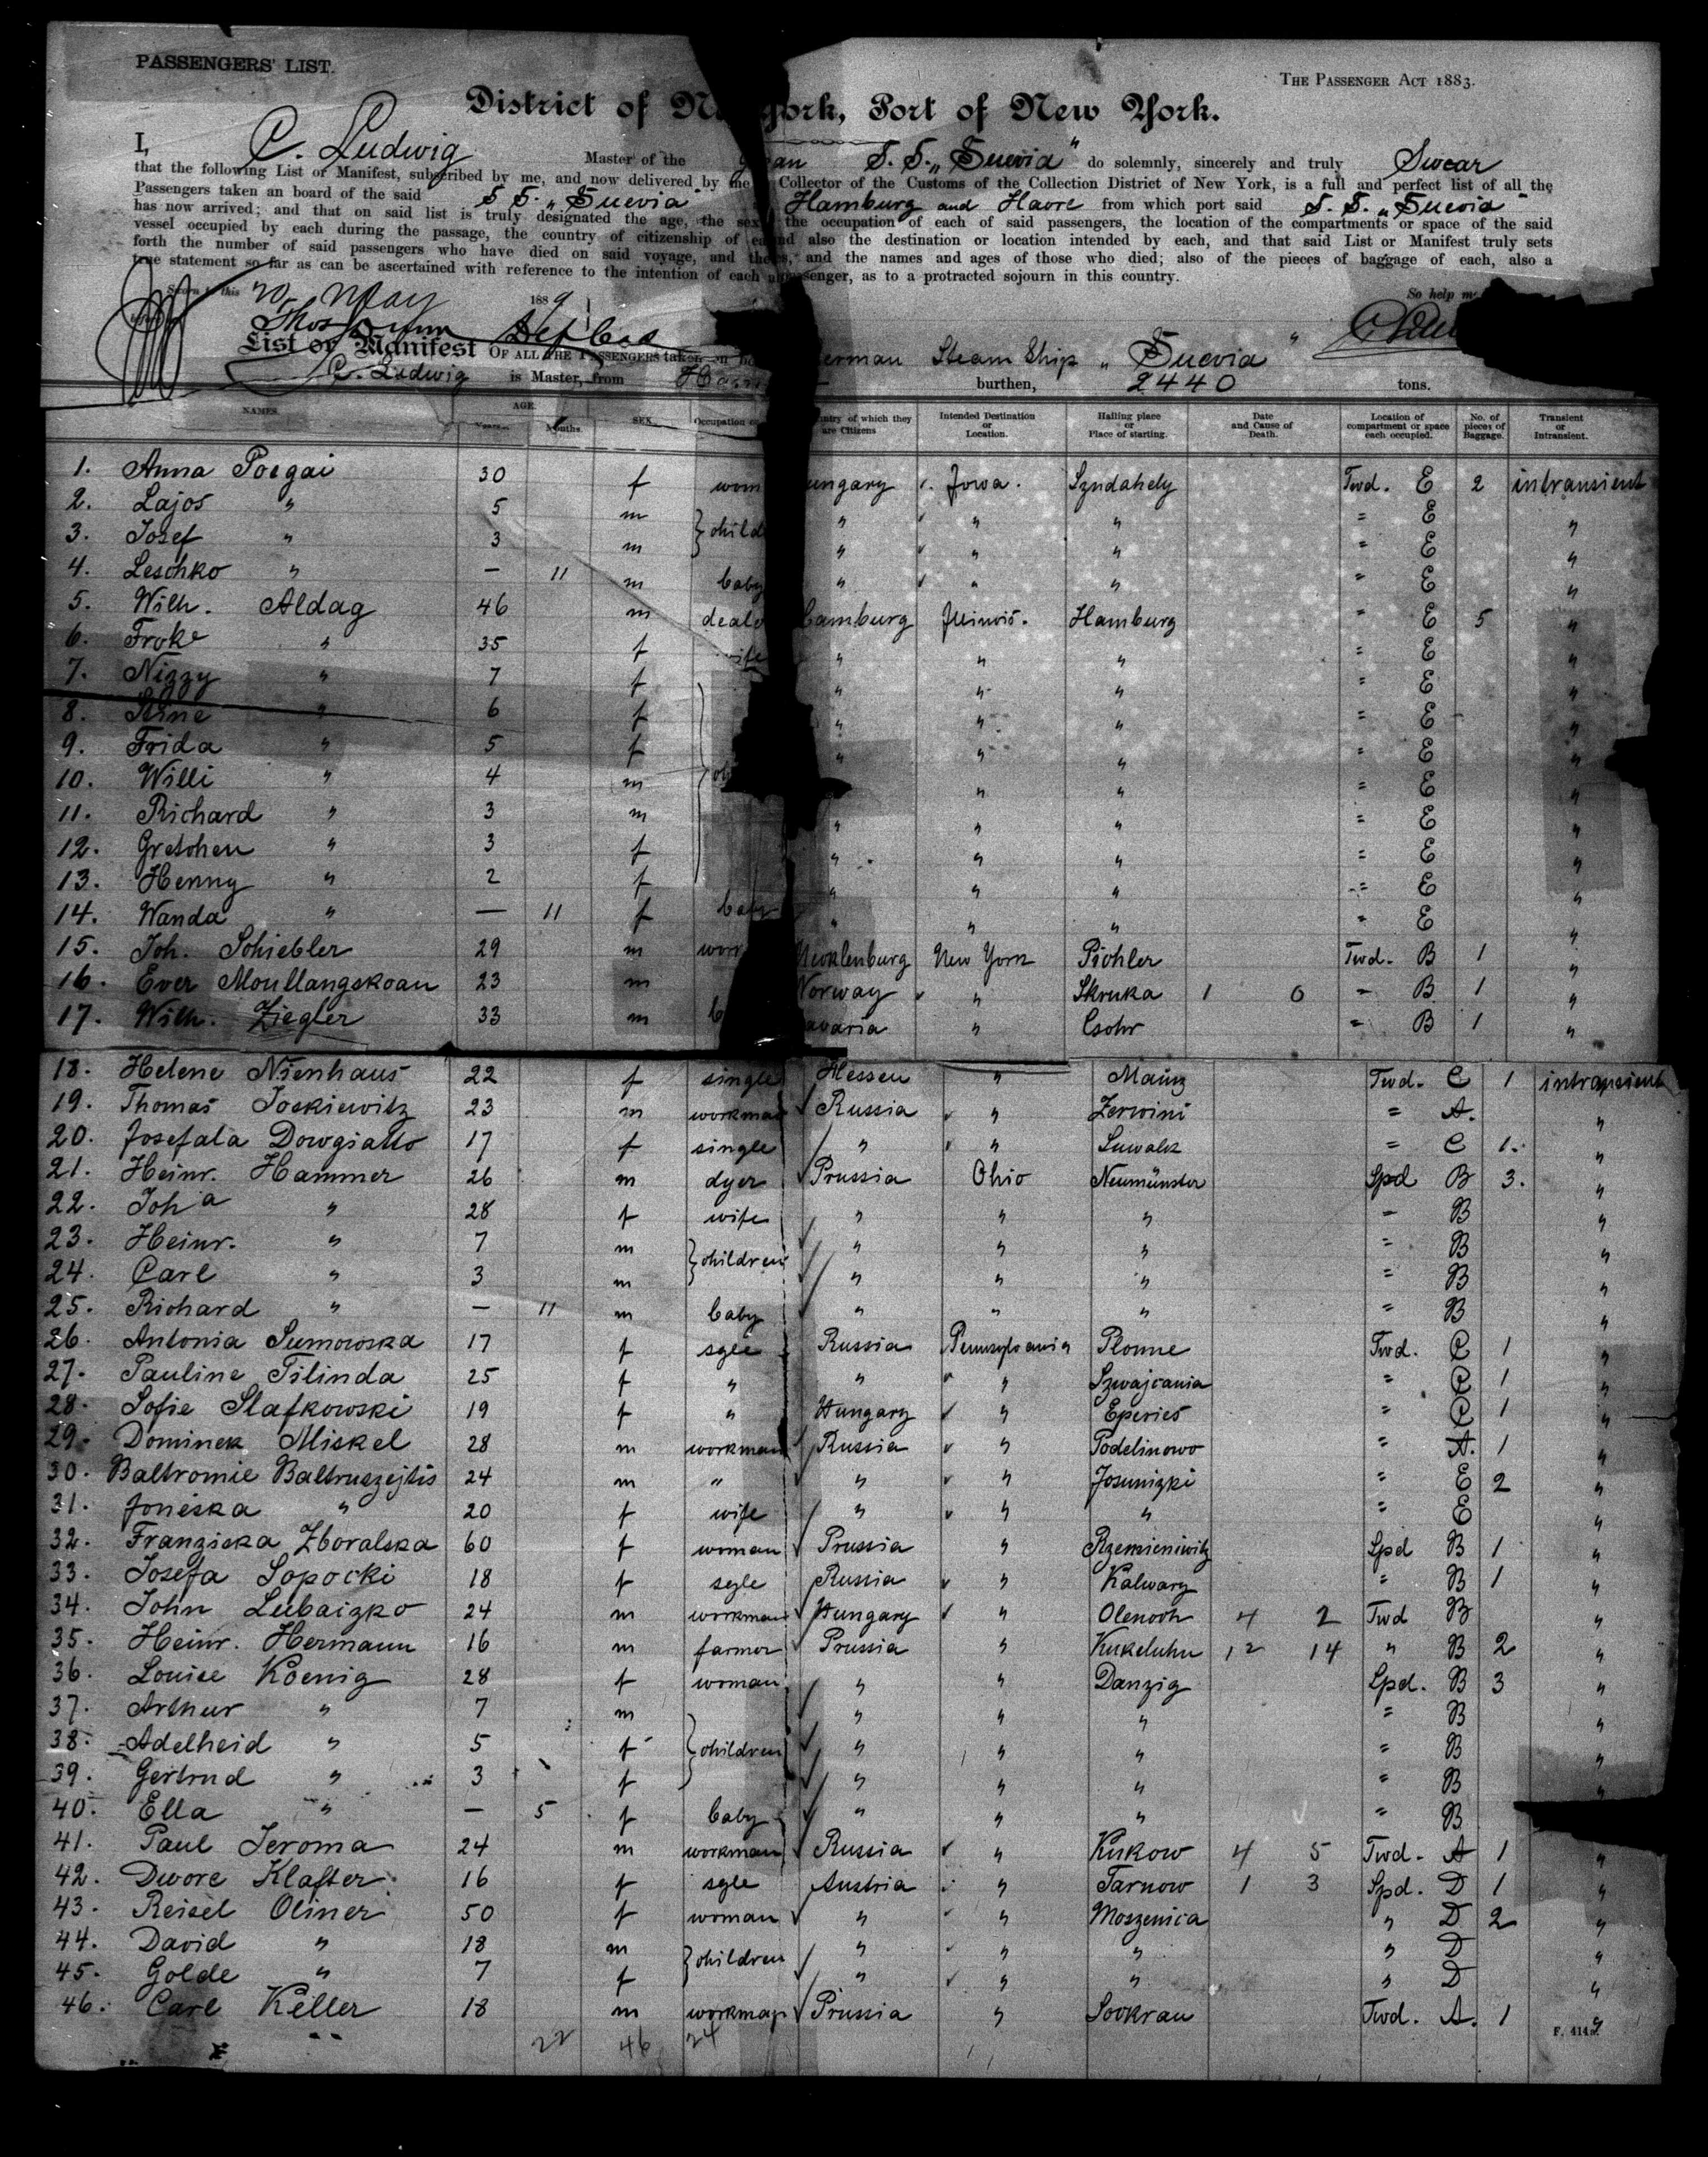 PASSENGERS' LIST.
THE PASSENGER ACT 1883.
District of N York, Port of New York.
I, C. Ludwig Master of the S. S. „Suevia" do solemnly, sincerely and truly Swear
that the following List or Manifest, subscribed by me, and now delivered by me Collector of the Customs of the Collection District of New York, is a full and perfect list of all the
Passengers taken an board of the said S S. „Suevia" Hamburg and Havre from which port said S. S. „Suevia"
has now arrived; and that on said list is truly designated the age, the sex the occupation of each of said passengers, the location of the compartments or space of the said
vessel occupied by each during the passage, the country of citizenship of and also the destination or location intended by each, and that said List or Manifest truly sets
forth the number of said passengers who have died on said voyage, and the and the names and ages of those who died; also of the pieces of baggage of each, also a
true statement so far as can be ascertained with reference to the intention of each passenger, as to a protracted sojourn in this country.
Sworn to this 20 May 1889 So help me
List or Manifest OF ALL THE PASSENGERS taken on German Steam Ship „Suevia"
C. Ludwig is Master, from burthen, 2440 tons.
NAMES. AGE. Years. Months. SEX. Occupation Country of which they are Citizens Intended Destination or Location. Hailing place or Place of starting. Date and Cause of Death. Location of compartment or space each occupied. No. of pieces of Baggage. Transient or Intransient.
1. Anna Poegai 30 f wom ungary Iowa. Szndahely Twd. E 2 intransient
2. Lajos " 5 m } child " " " = E "
3. Josef " 3 m " " " = E "
4. Leschko " — 11 m baby " " " = E "
5. Wilh. Aldag 46 m deal Hamburg Illinois. Hamburg = E 5 "
6. Froke " 35 f wife " " " = E "
7. Nizzy " 7 f " " " = E "
8. Stine " 6 f " " " = E "
9. Frida " 5 f " " " = E "
10. Willi " 4 m " " " = E "
11. Richard " 3 m " " " = E "
12. Gretchen " 3 f " " " = E "
13. Henny " 2 f " " " = E "
14. Wanda " — 11 f baby " " " = E "
15. Joh. Schiebler 29 m work Mecklenburg New York Pichler Twd. B 1 "
16. Ever Moullangskoan 23 m Norway " Skruka 1 6 = B 1 "
17. Wilh. Ziegler 33 m avaria " Csohr = B 1 "
18. Helene Nienhaus 22 f single Hessen " Mainz Twd. C 1 intransient
19. Thomas Joskiewitz 23 m workman Russia " Zerwini = A. "
20. Josefala Dowgiatto 17 f single " " Suwalk = C 1. "
21. Heinr. Hammer 26 m dyer Prussia Ohio Neumünster Spd B 3. "
22. Joha " 28 f wife " " " = B "
23. Heinr. " 7 m } children " " " = B "
24. Carl " 3 m " " " = B "
25. Richard " — 11 m baby " " " = B "
26. Antonia Sumowska 17 f sgle Russia Pennsylvania Plonne Twd. C 1 "
27. Pauline Tilinda 25 f " " " Szwajcania = C 1 "
28. Sofie Slafkowski 19 f " Hungary " Eperies = C 1 "
29. Dominek Miskel 28 m workman Russia " Podelinowo = A. 1 "
30. Baltromie Baltruszejtis 24 m " " " Josunizki = E 2 "
31. Joneska " 20 f wife " " " = E "
32. Franziska Zboralska 60 f woman Prussia " Rzemieniwitz Spd B 1 "
33. Josefa Sopocki 18 f sgle Russia " Kalwary = B 1 "
34. John Lubaizko 24 m workman Hungary " Olenoch 4 2 Twd B "
35. Heinr. Hermann 16 m farmer Prussia " Kukeluhn 12 14 " B 2 "
36. Louise Koenig 28 f woman " " Danzig Spd. B 3 "
37. Arthur " 7 m " " " = B "
38. Adelheid " 5 f } children " " " = B "
39. Gertrud " 3 f " " " = B "
40. Ella " — 5 f baby " " " = B "
41. Paul Jeroma 24 m workman Russia " Kukow 4 5 Twd. A 1 "
42. Dwore Klafter 16 f sgle Austria " Tarnow 1 3 Spd. D 1 "
43. Reisel Oliner 50 f woman " " Moszenica " D 2 "
44. David " 18 m } children " " " " D "
45. Golde " 7 f " " " " D "
46. Carl Keller 18 m workman Prussia " Sookrau Twd. A. 1 "
22 46 24
F. 414